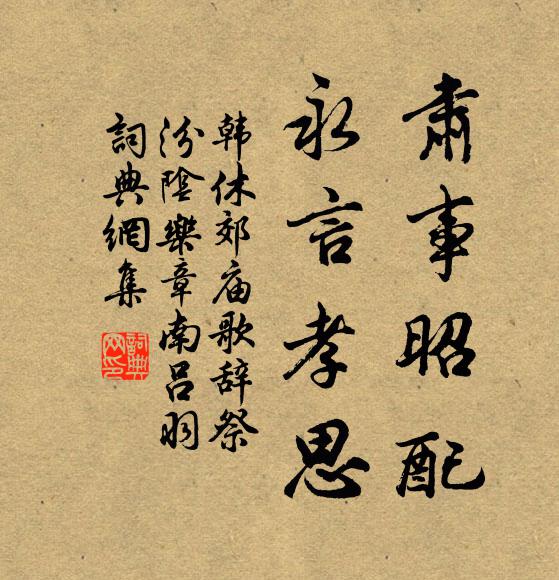 肅事昭配
永言孝思
韩休郊庙歌辞祭
汾陰樂章南呂羽
詞典網集
詞典
网印